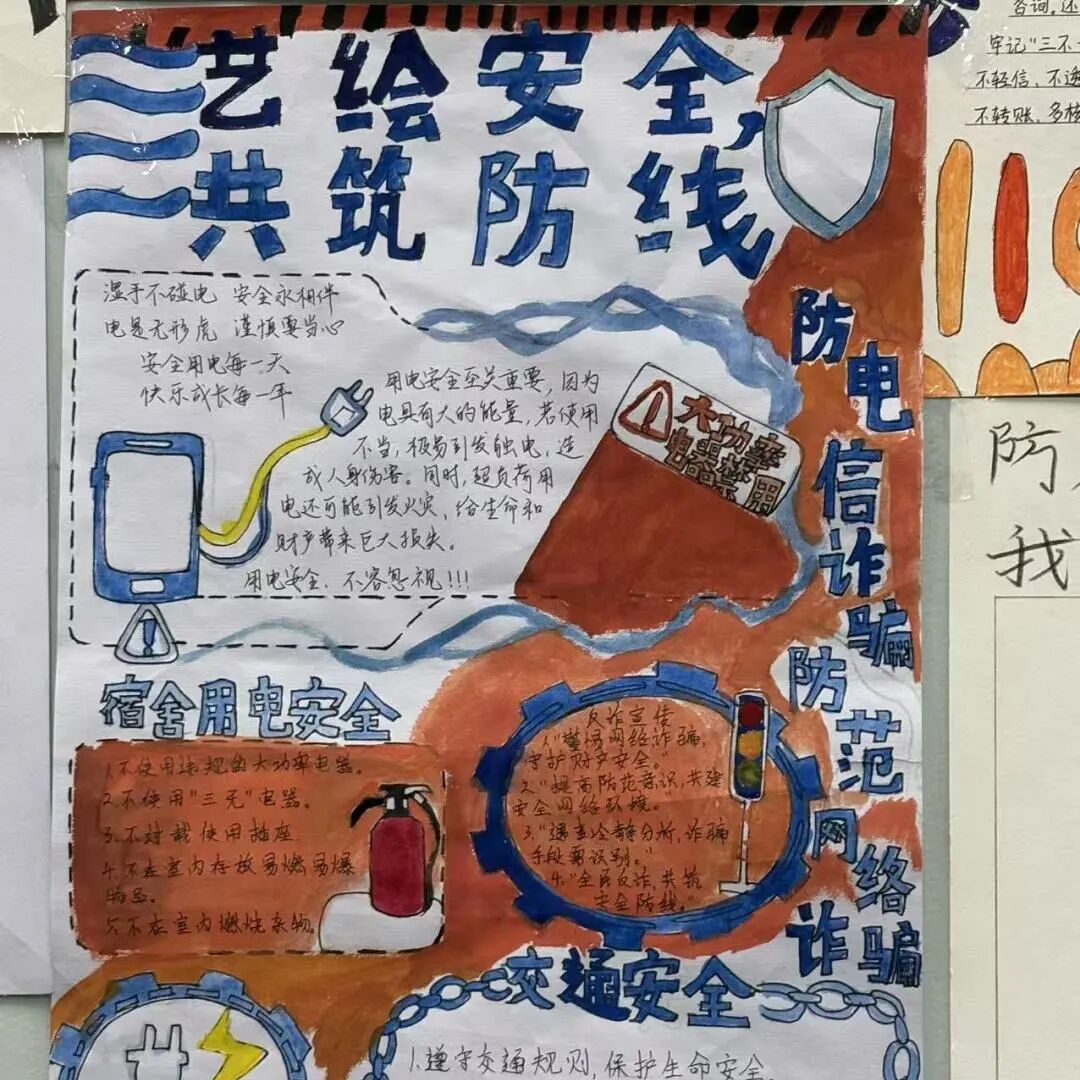 艺绘安全,
共筑防线
湿手不碰电 安全永相伴
电是无形虎 谨慎要当心
安全用电每一天
快乐成长每一年
用电安全至关重要,因为
电具有大的能量,若使用
不当,极易引发触电,造
成人身伤害。同时,超负荷用
电还可能引发火灾,给生命和
财产带来巨大损失。
用电安全,不容忽视!!!
大功率
电器禁
用
防电信诈骗
防范网络诈骗
宿舍用电安全
1.不使用违规的大功率电器。
2.不使用"三无"电器。
3.不过载使用插座
4.不在室内存放易燃易爆
物品。
5.不在室内燃烧杂物。
反诈宣传
1."警惕网络诈骗,
守护财产安全。"
2."提高防范意识,共建
安全网络环境。"
3."遇事冷静分析,诈骗
手段需识别。"
4."全民反诈,共筑
安全防线。"
交通安全
1.遵守交通规则,保护生命安全
咨询,还
牢记"三不一
不轻信、不透
不转账、多核
110
防
我